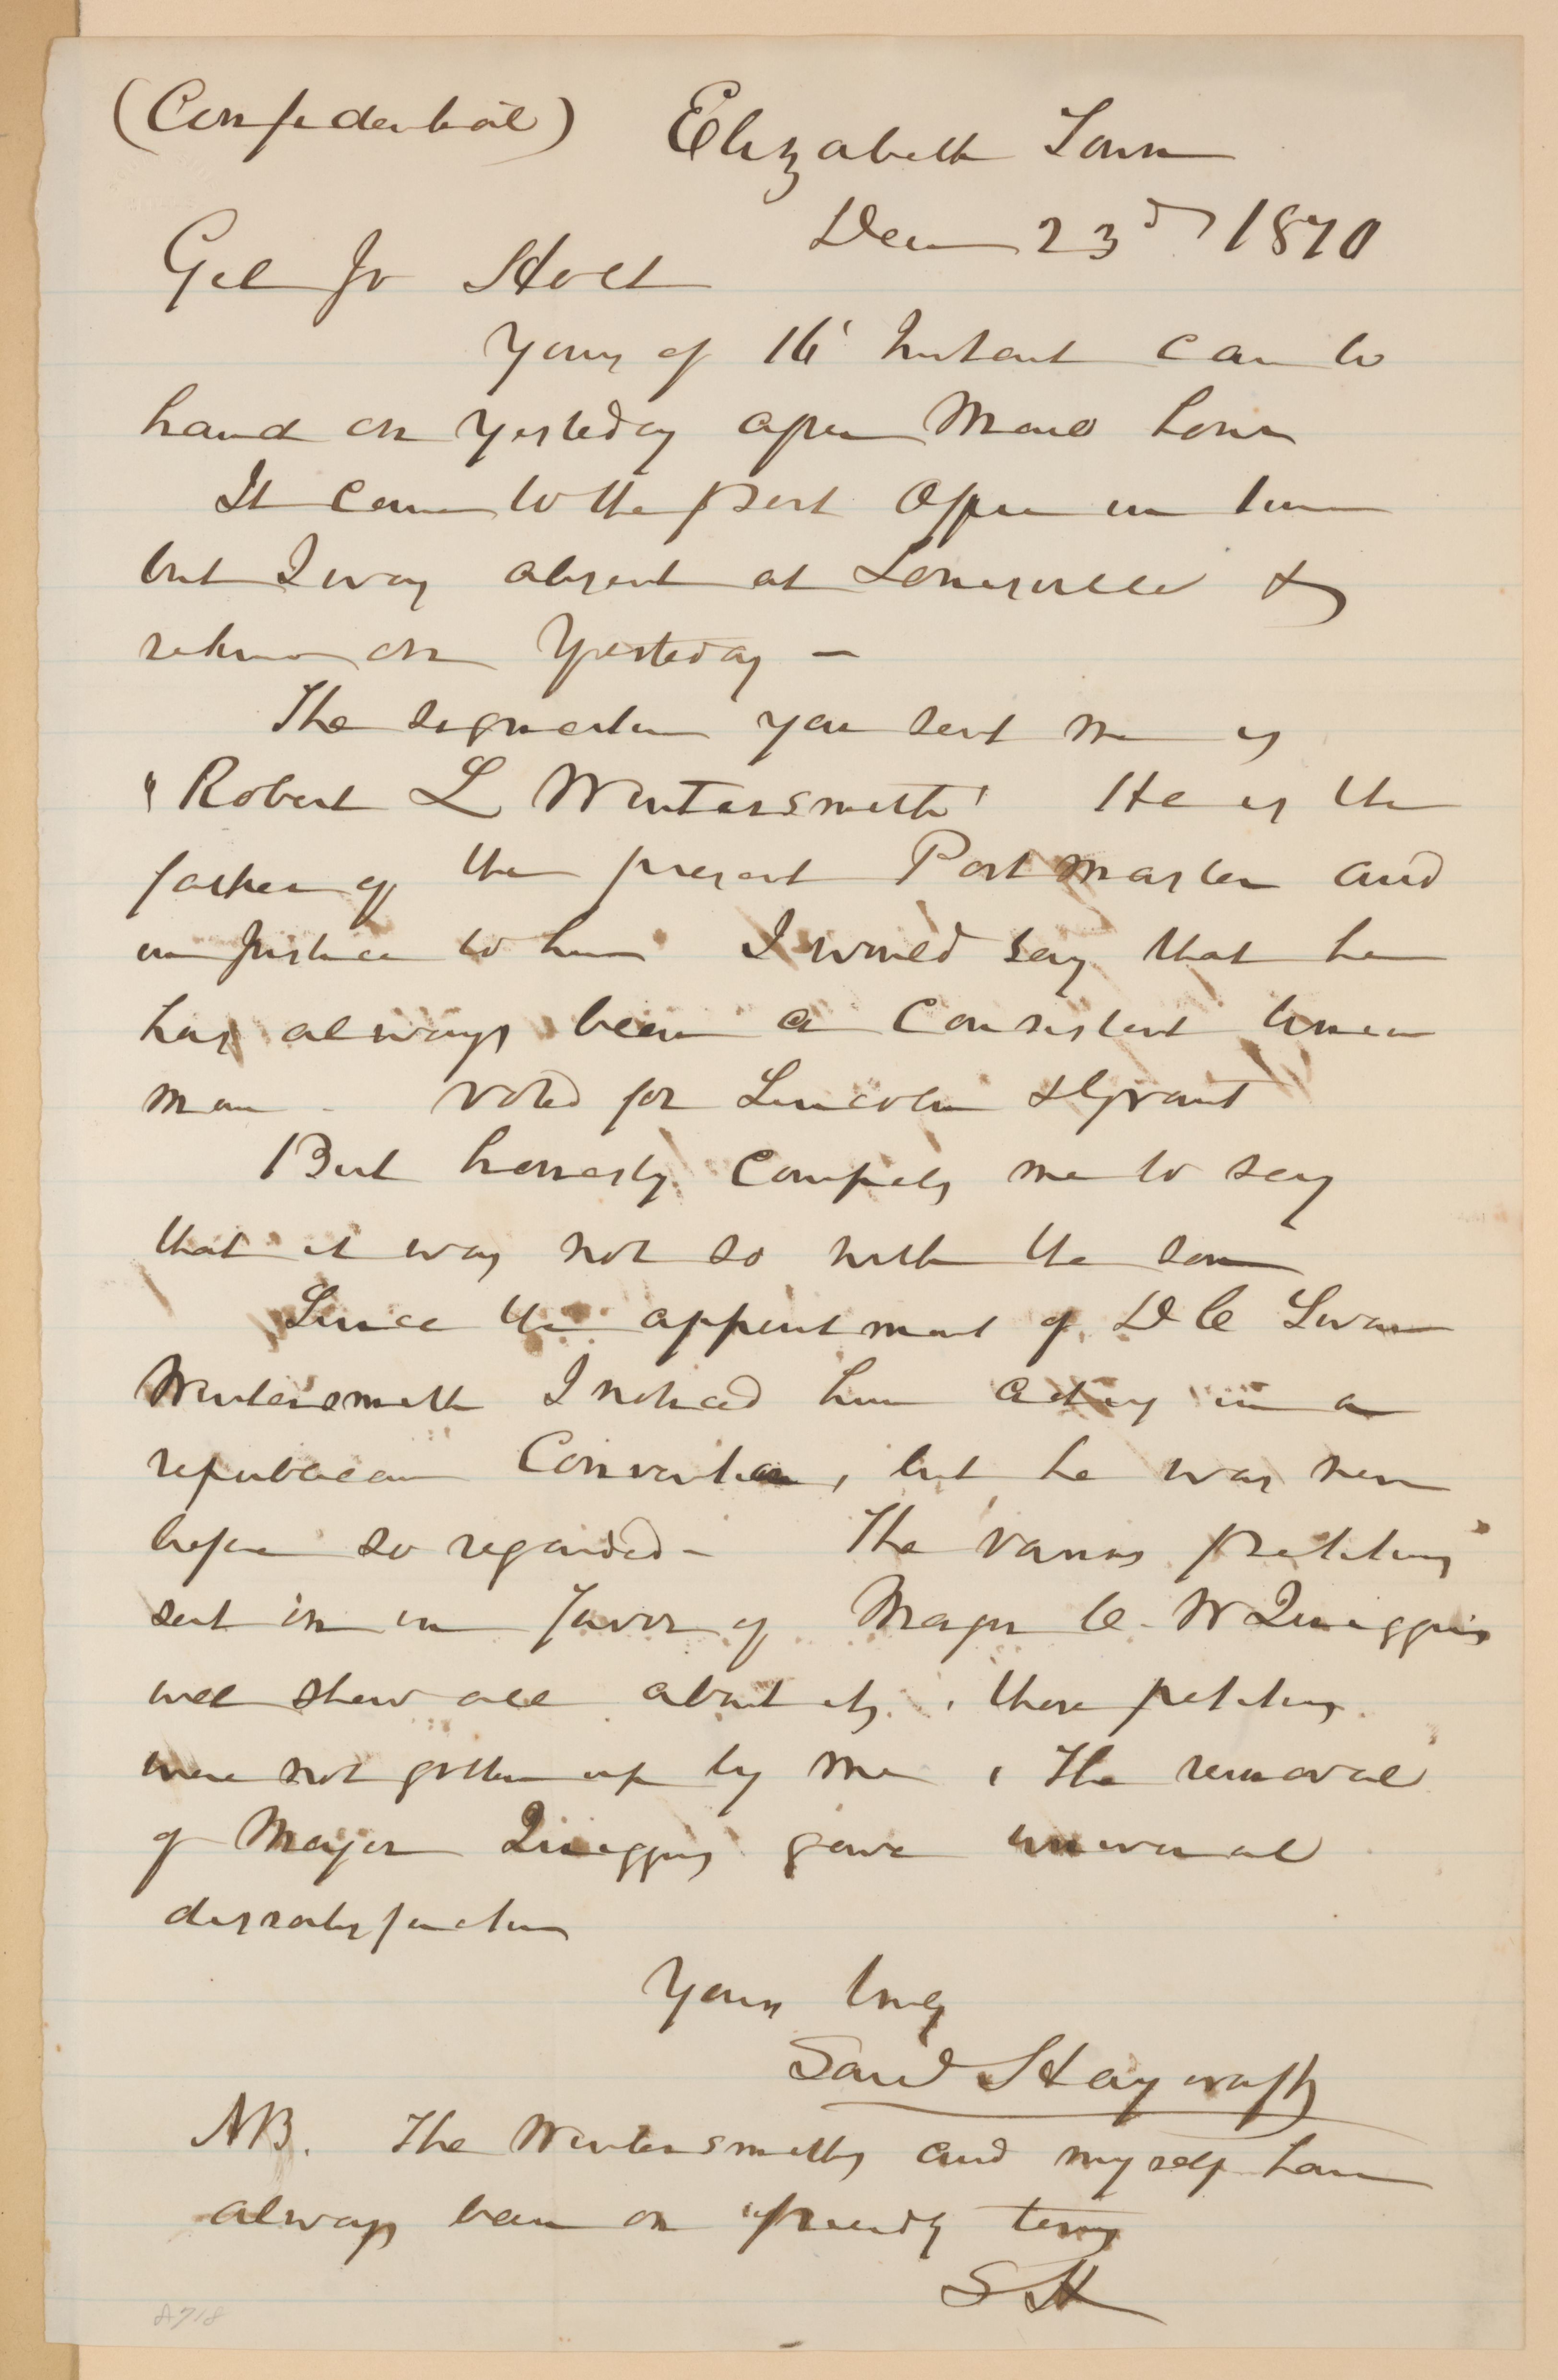 (Confidential) Elizabeth Town
Decm 23d 1870
Genl Jo Holt
Yours of 16' Instant came to
hand on yesterday after Mane hour
It came to the post Office in time
but I was absent at Louisville &
return on Yesterday -
The signature you sent me is
"Robert L Wintersmith' He is the
father of the present Post master and
in Justice to him I would say that he
has always been a Consistent Union
man voted for Lincoln & Grant
But honesty Compels me to say
that it was not so with the son
Since the appointment of D C Swan
Wintersmith I noticed him acting in a
republican Convention, but he was never
before so regarded - The various petitions
sent on in favor of Major C. W Quiggins
will show all about it, those petitions
were not gotten up by me, The removal
of Major Quiggins gave universal
dissatisfaction
Yours truly
Saml Haycraft
NB. The Wintersmiths and myself have
always been on friendly terms
SH
A718